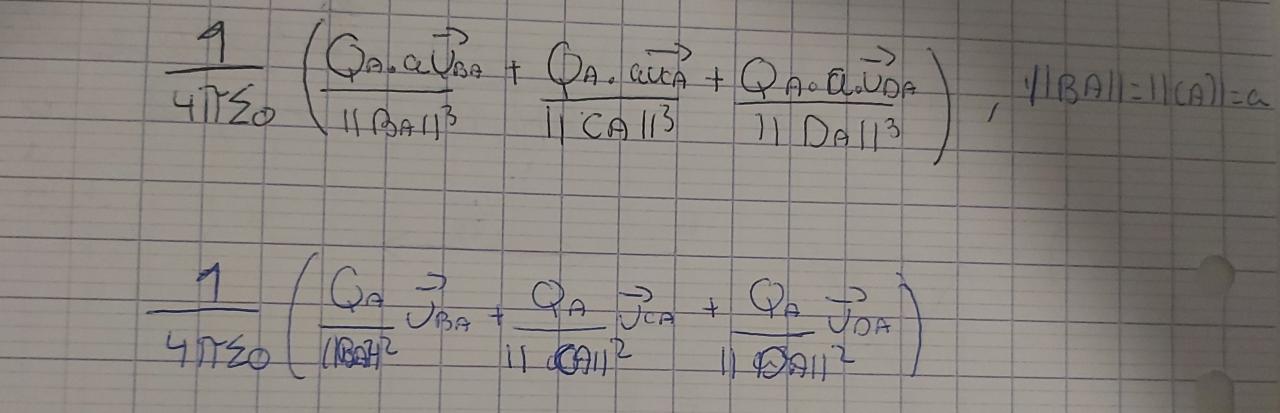 1/4πε0 (QA.a U⃗BA/||BA||³ + QA.a u⃗CA/||CA||³ + QA.a.U⃗DA/||DA||³), ||BA||=||CA||=a
1/4πε0 (QA/||BA||² U⃗BA + QA/||CA||² U⃗CA + QA/||DA||² U⃗DA)